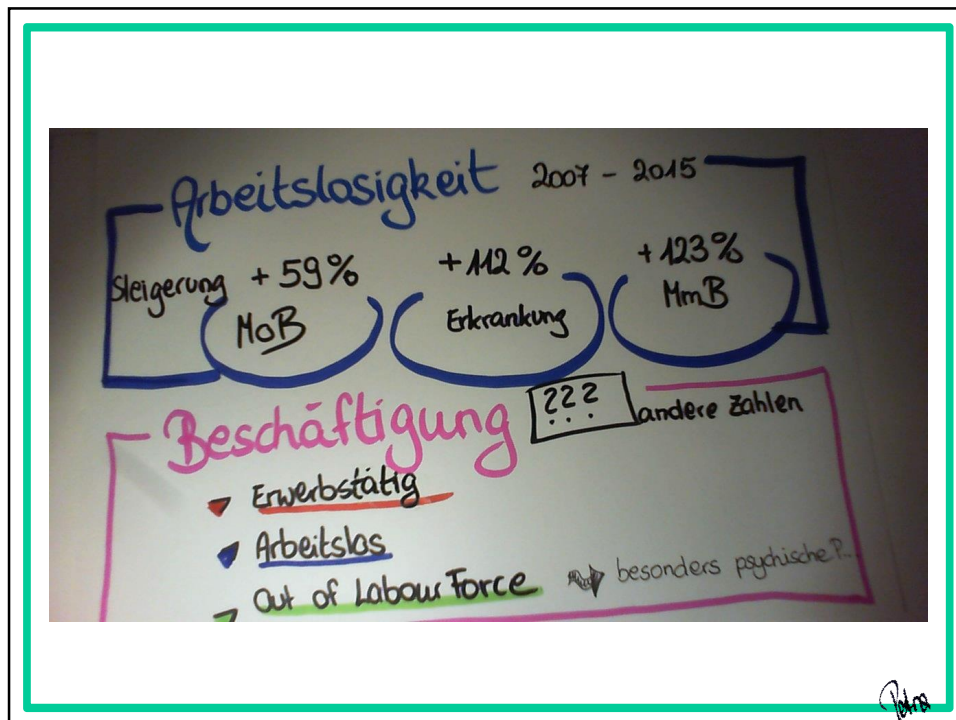 Arbeitslosigkeit 2007 - 2015
Steigerung +59% +112% +123%
MoB Erkrankung MmB
Beschäftigung ??? andere Zahlen
Erwerbstätig
Arbeitslos
Out of Labour Force besonders psychische P...
Petra